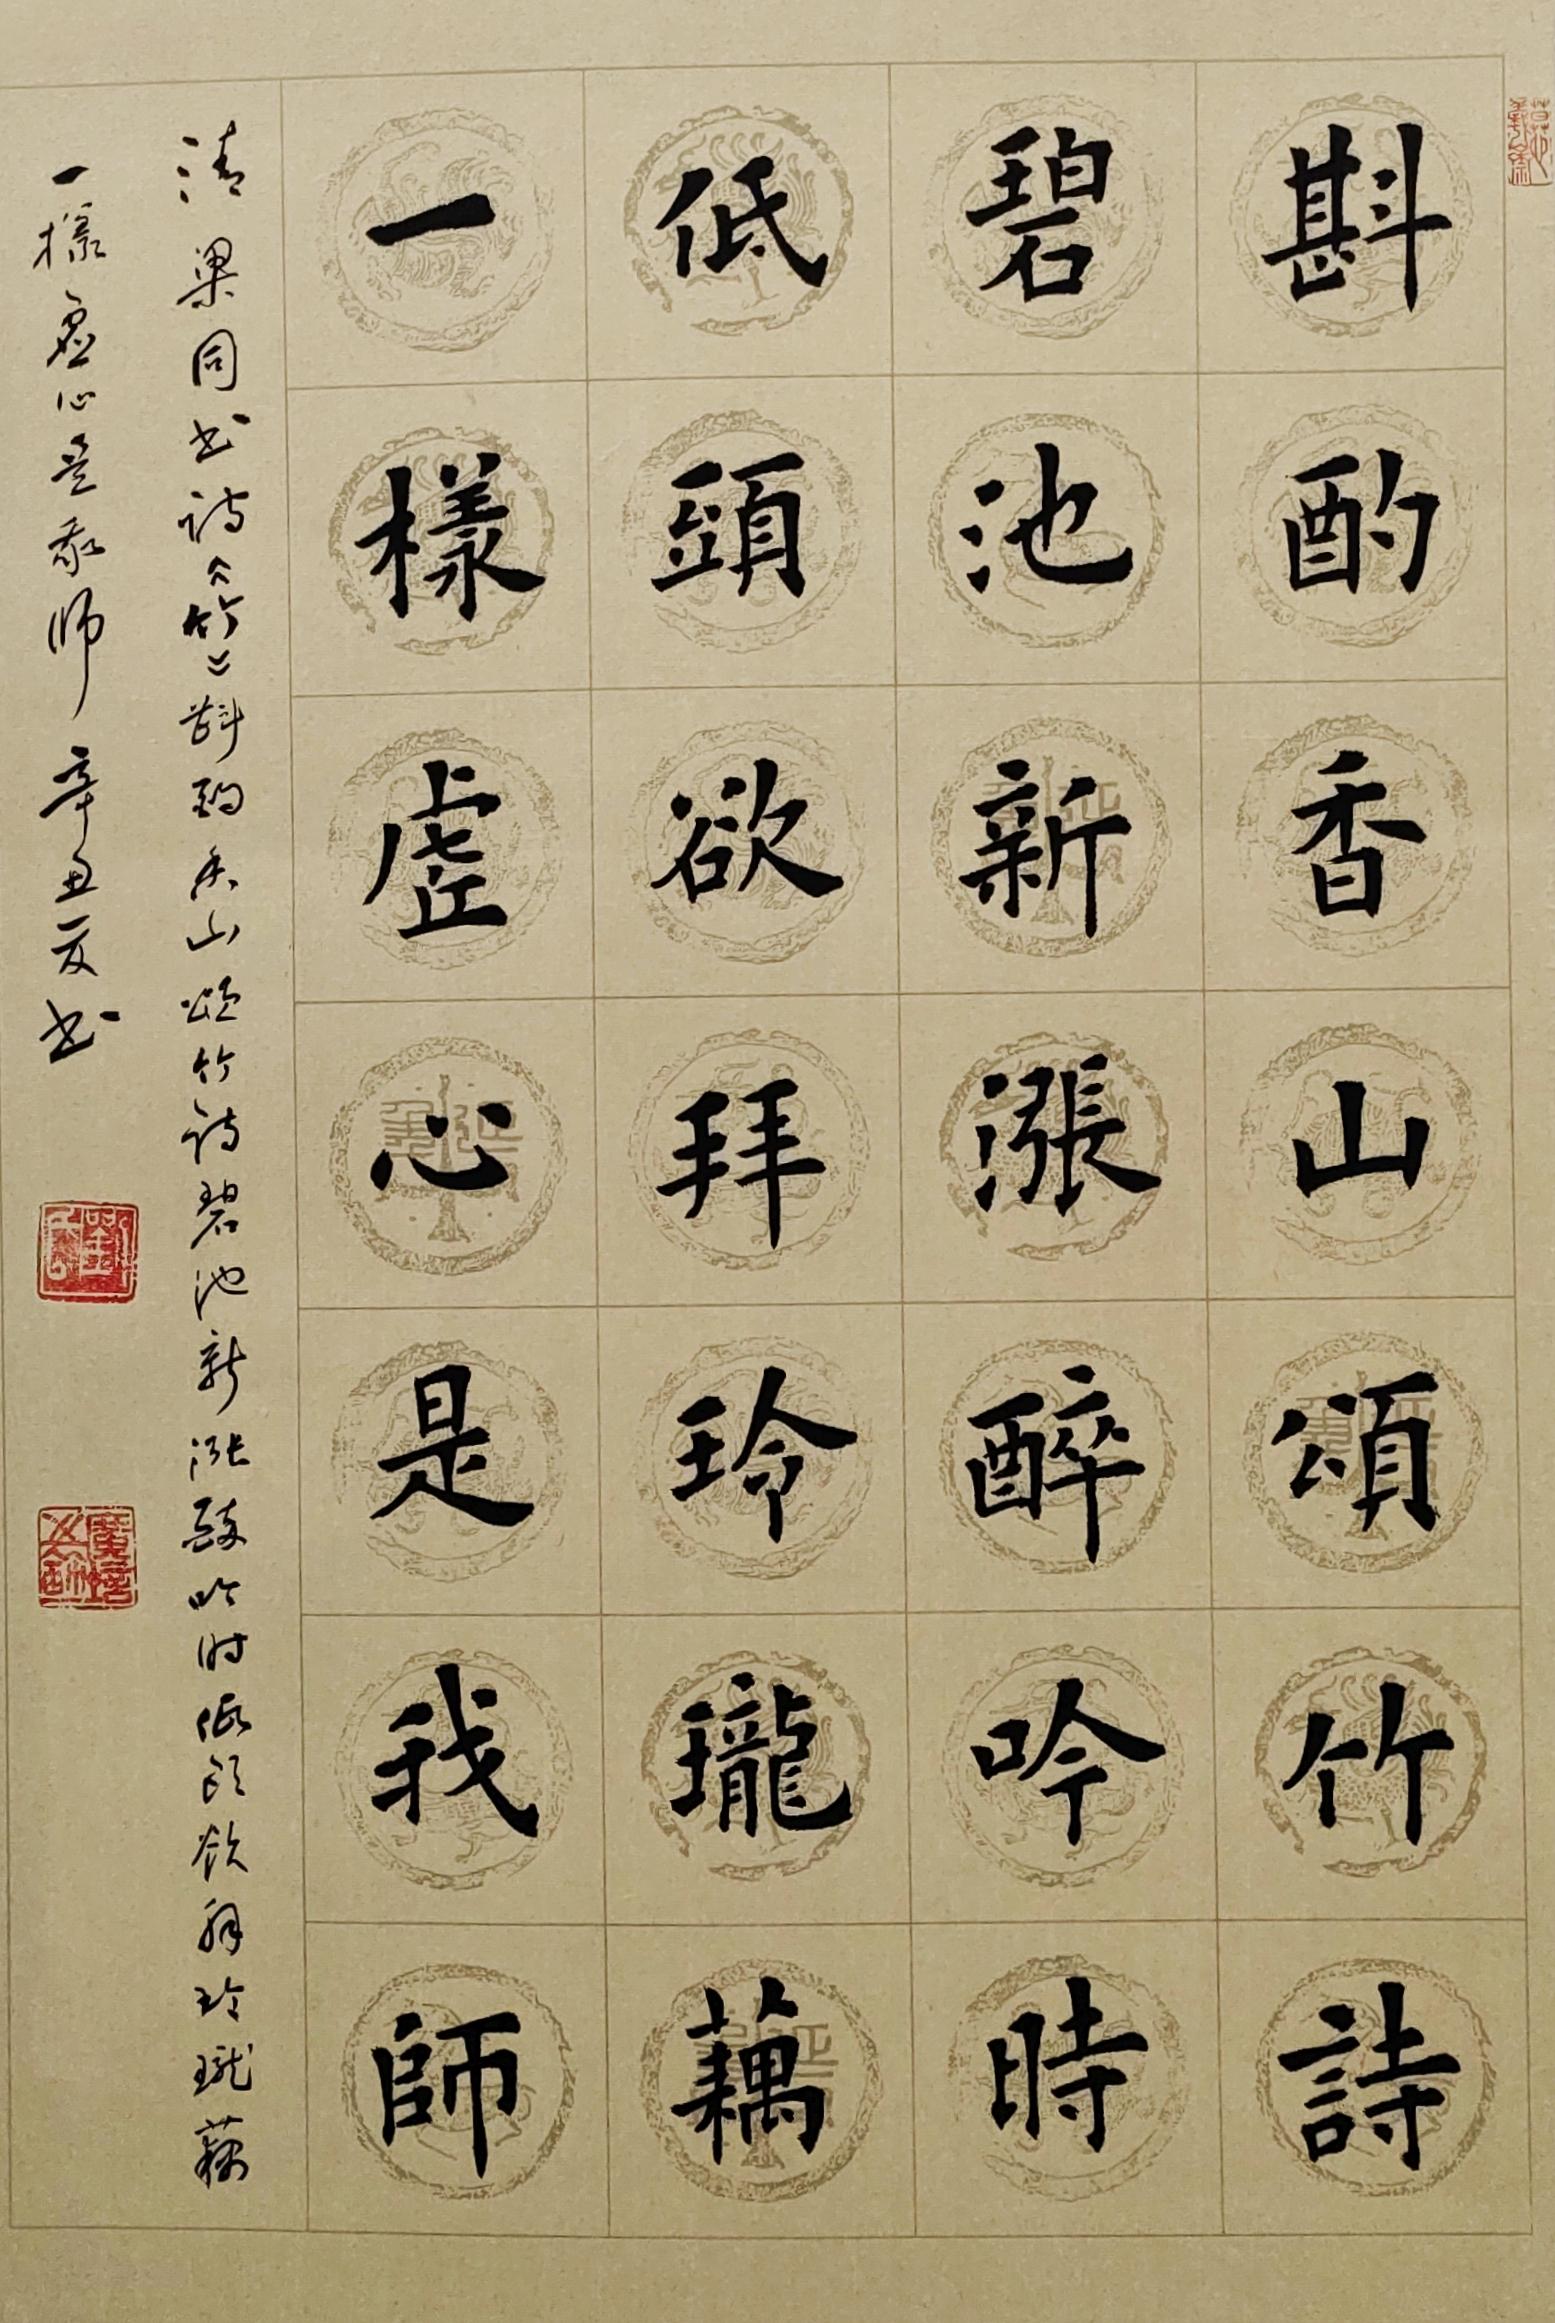 斟酌香山頌竹詩
碧池新漲醉吟時
低頭欲拜玲瓏藕
一樣虛心是我師
清梁同书诗《竹》斟酌香山颂竹诗碧池新涨醉吟时低头欲拜玲珑藕
一樣虚心是我师 辛丑夏书